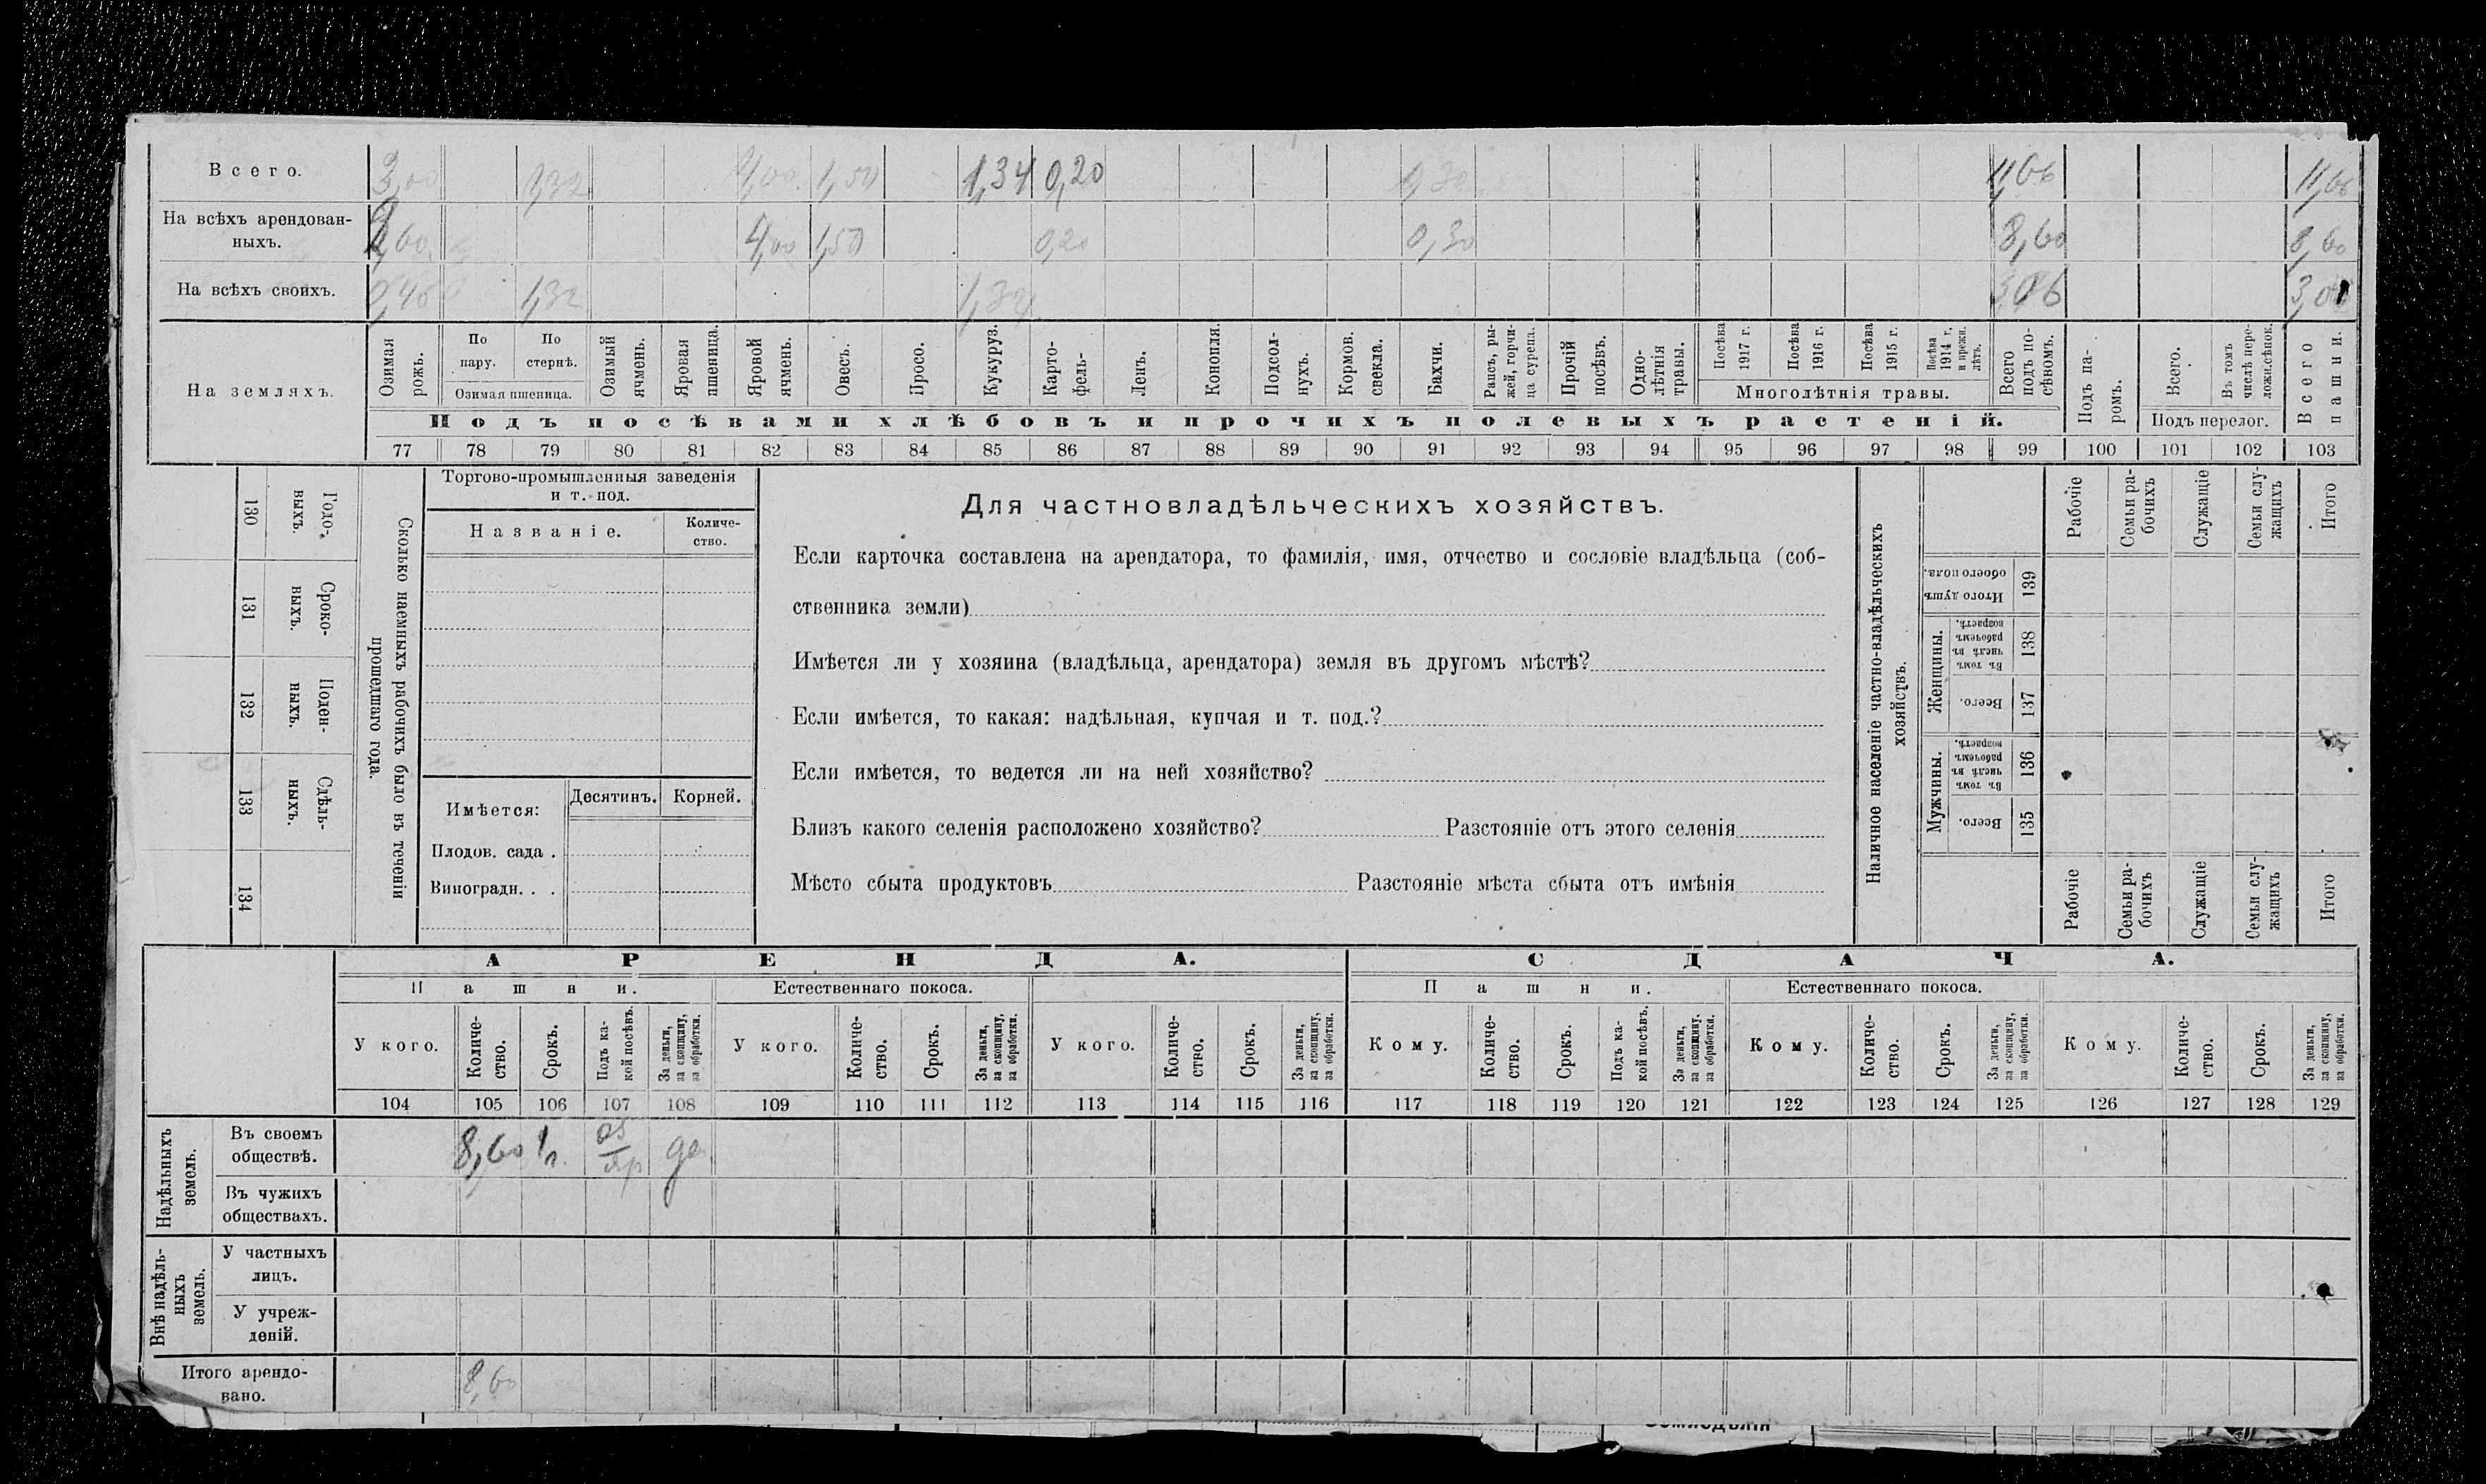 Всего. 3,00 1,32 4,00 1,50 1,34 0,20 0,30 11,66 11,66
На всѣхъ арендован-
ныхъ. 2,60 4,00 1,50 0,20 0,30 8,60 8,60
На всѣхъ своихъ. 0,40 1,32 1,34 3,06 3,06
На земляхъ.
Озимая рожь.
По пару.
По стернѣ.
Озимая пшеница.
Озимый ячмень.
Яровая пшеница.
Яровой ячмень.
Овесъ.
Просо.
Кукуруз.
Карто-
фель-
Ленъ.
Конопля.
Подсол-
нухъ.
Кормов. свекла.
Бахчи.
Рапсъ, ры-
жей, горчи-
ца сурепа.
Прочій посѣвъ.
Одно-
лѣтнія травы.
Посѣва 1917 г.
Посѣва 1916 г.
Посѣва 1915 г.
Посѣва 1914 г. и прежн. лѣтъ.
Многолѣтнія травы.
Всего подъ по-
сѣвомъ.
Подъ па-
ромъ.
Всего.
Въ томъ числѣ пере-
ложн.сѣнок.
Подъ перелог.
Всего пашни.
Подъ посѣвами хлѣбовъ и прочихъ полевыхъ растеній.
77 78 79 80 81 82 83 84 85 86 87 88 89 90 91 92 93 94 95 96 97 98 99 100 101 102 103
130 Годо-
выхъ.
131 Сроко-
выхъ.
132 Поден-
ныхъ.
133 Сдѣль-
ныхъ.
134
Сколько наемныхъ рабочихъ было въ теченіи
прошедшаго года.
Торгово-промышленныя заведенія
и т. под.
Названіе. Количе-
ство.
Имѣется: Десятинъ. Корней.
Плодов. сада .
Виноградн. . .
Для частновладѣльческихъ хозяйствъ.
Если карточка составлена на арендатора, то фамилія, имя, отчество и сословіе владѣльца (соб-
ственника земли)
Имѣется ли у хозяина (владѣльца, арендатора) земля въ другомъ мѣстѣ?
Если имѣется, то какая: надѣльная, купчая и т. под.?
Если имѣется, то ведется ли на ней хозяйство?
Близъ какого селенія расположено хозяйство? Разстояніе отъ этого селенія
Мѣсто сбыта продуктовъ Разстояніе мѣста сбыта отъ имѣнія
Наличное населеніе частно-владѣльческихъ
хозяйствъ.
Рабочіе
Семьи ра-
бочихъ
Служащіе
Семьи слу-
жащихъ
Итого
Итого душъ обоего пола. 139
Женщины.
Въ томъ числѣ въ рабочемъ возрастѣ. 138
Всего. 137
Мужчины.
Въ томъ числѣ въ рабочемъ возрастѣ. 136
Всего. 135
Рабочіе
Семьи ра-
бочихъ
Служащіе
Семьи слу-
жащихъ
Итого
АРЕНДА. СДАЧА.
Пашни. Естественнаго покоса. Пашни. Естественнаго покоса.
У кого.
Количе-
ство.
Срокъ.
Подъ ка-
кой посѣвъ.
За деньги, за скопщину, за обработки.
У кого.
Количе-
ство.
Срокъ.
За деньги, за скопщину, за обработки.
У кого.
Количе-
ство.
Срокъ.
За деньги, за скопщину, за обработки.
Кому.
Количе-
ство.
Срокъ.
Подъ ка-
кой посѣвъ.
За деньги, за скопщину, за обработки.
Кому.
Количе-
ство.
Срокъ.
За деньги, за скопщину, за обработки.
Кому.
Количе-
ство.
Срокъ.
За деньги, за скопщину, за обработки.
104 105 106 107 108 109 110 111 112 113 114 115 116 117 118 119 120 121 122 123 124 125 126 127 128 129
Надѣльныхъ земель.
Въ своемъ
обществѣ. 8,60 1 оз яр де
Въ чужихъ
обществахъ.
Внѣ надѣль-
ныхъ земель.
У частныхъ
лицъ.
У учреж-
деній.
Итого арендо-
вано. 8,60